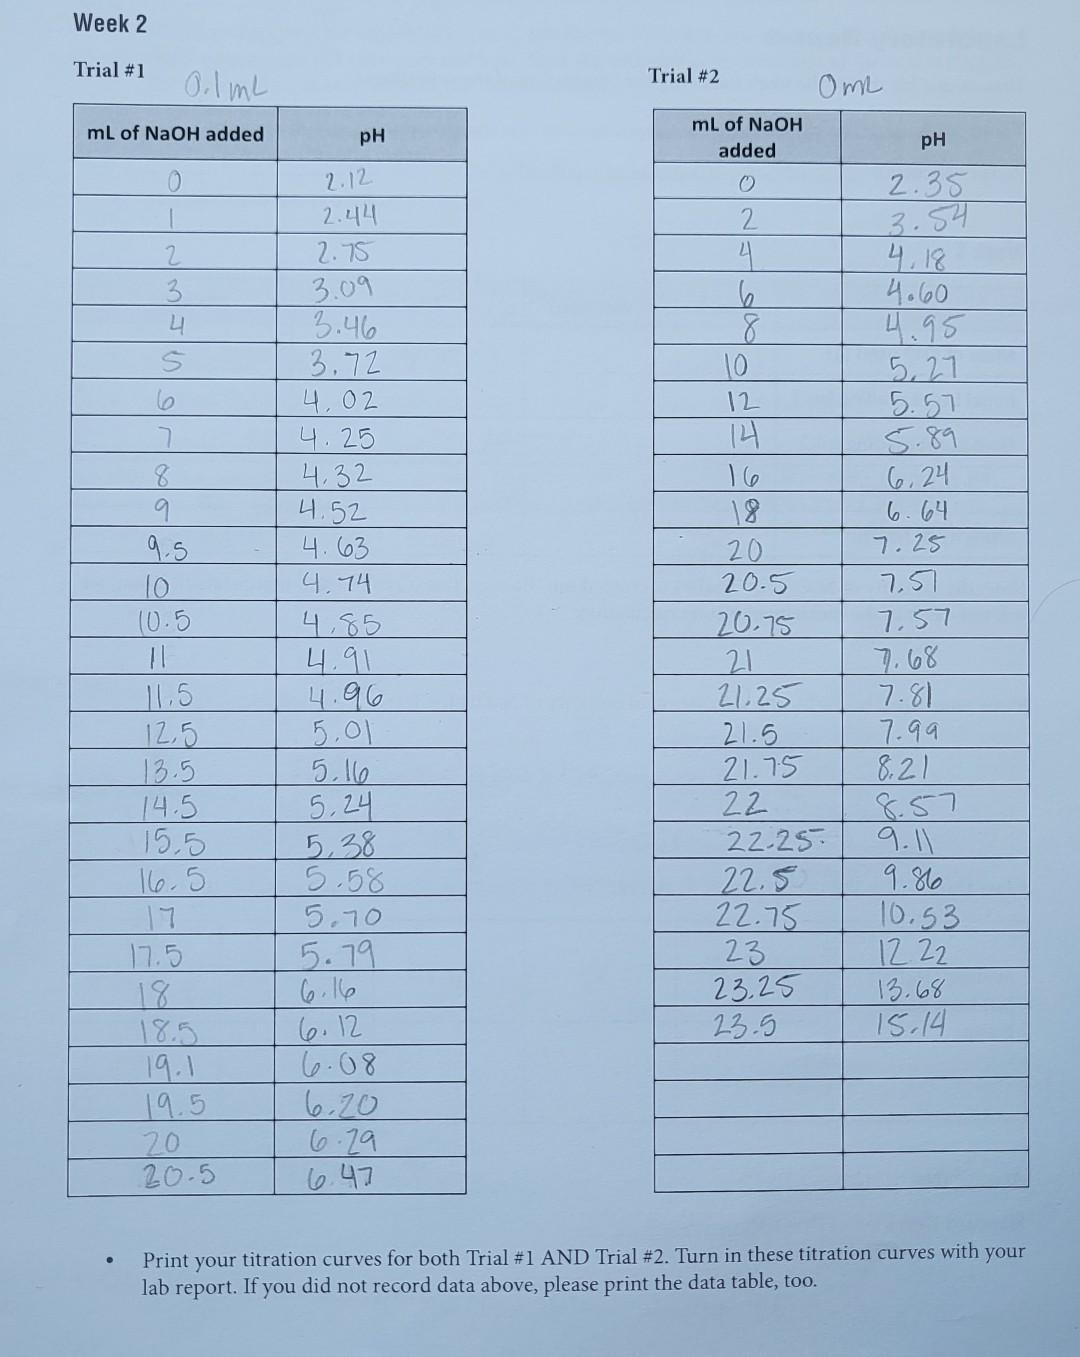 Week 2
Trial #1 0.1mL
mL of NaOH added pH
0 2.12
1 2.44
2 2.75
3 3.09
4 3.46
5 3.72
6 4.02
7 4.25
8 4.32
9 4.52
9.5 4.63
10 4.74
10.5 4.85
11 4.91
11.5 4.96
12.5 5.01
13.5 5.16
14.5 5.24
15.5 5.38
16.5 5.58
17 5.70
17.5 5.79
18 6.16
18.5 6.12
19.1 6.08
19.5 6.20
20 6.29
20.5 6.47
Trial #2 0mL
mL of NaOH
added pH
0 2.35
2 3.54
4 4.18
6 4.60
8 4.95
10 5.27
12 5.57
14 5.89
16 6.24
18 6.64
20 7.25
20.5 7.51
20.75 7.57
21 7.68
21.25 7.81
21.5 7.99
21.75 8.21
22 8.57
22.25 9.11
22.5 9.86
22.75 10.53
23 12.22
23.25 13.68
23.5 15.14
• Print your titration curves for both Trial #1 AND Trial #2. Turn in these titration curves with your
lab report. If you did not record data above, please print the data table, too.